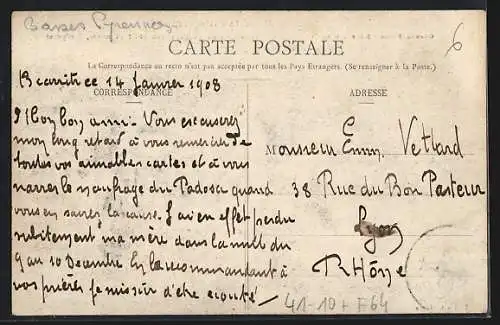 Basses Pyrenees
6
CARTE POSTALE
La Correspondance au recto n'est pas acceptée par tous les Pays Etrangers. (Se renseigner à la Poste.)
Biarritz ce 14 Janvier 1908
CORRESPONDANCE
ADRESSE
Mon bon ami - Vous excuserez
mon long retard à vous remercier de
toutes vos aimables cartes et à vous
narrer le naufrage du Padosa quand
vous en saurez la cause. J'ai en effet perdu
subitement ma mère dans la nuit du
9 au 10 Décembre En la recommandant à
vos prières je me sûr d'être écouté
Monsieur Emm. Vettard
38 Rue du Bon Pasteur
Lyon
Rhône
41-10+ F64